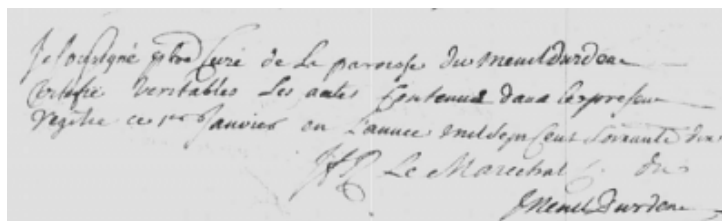 Je soussigné ptre Curé de la paroisse du menildurdent
Certifie Veritables Les actes Contenus dans Le present
Registre ce 1er Janvier en L'année mil sept Cent Soixante dix
Le Marechal C. du
menildurdent